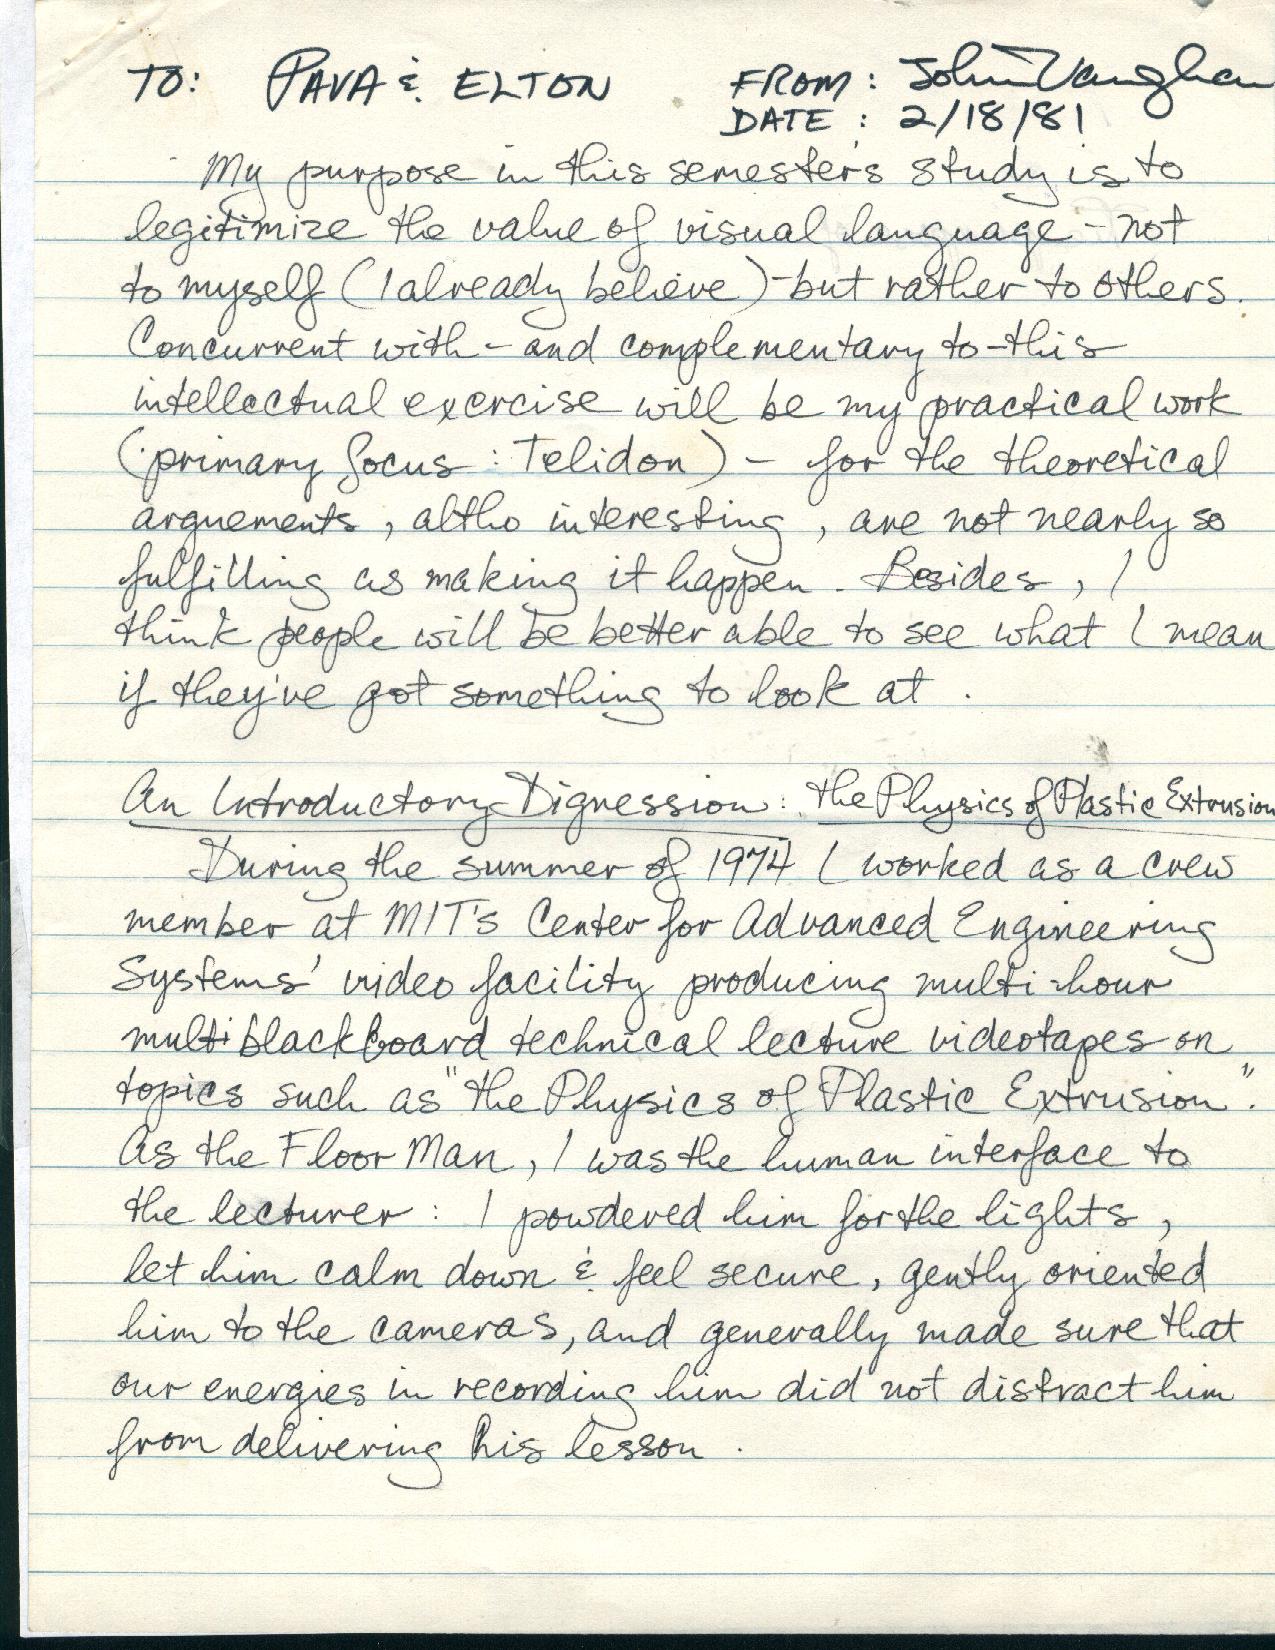 TO: PAVA & ELTON FROM: John Vaughan
DATE: 2/18/81
My purpose in this semester's study is to
legitimize the value of visual language - not
to myself (I already believe) - but rather to others.
Concurrent with - and complementary to - this
intellectual exercise will be my practical work
(primary focus: Telidon) - for the theoretical
arguements, altho interesting, are not nearly so
fulfilling as making it happen. Besides, I
think people will be better able to see what I mean
if they've got something to look at.
An Introductory Digression: the Physics of Plastic Extrusion
During the summer of 1974 I worked as a crew
member at MIT's Center for Advanced Engineering
Systems' video facility producing multi-hour
multiblackboard technical lecture videotapes on
topics such as "the Physics of Plastic Extrusion".
As the Floor Man, I was the human interface to
the lecturer: I powdered him for the lights,
let him calm down & feel secure, gently oriented
him to the cameras, and generally made sure that
our energies in recording him did not distract him
from delivering his lesson.